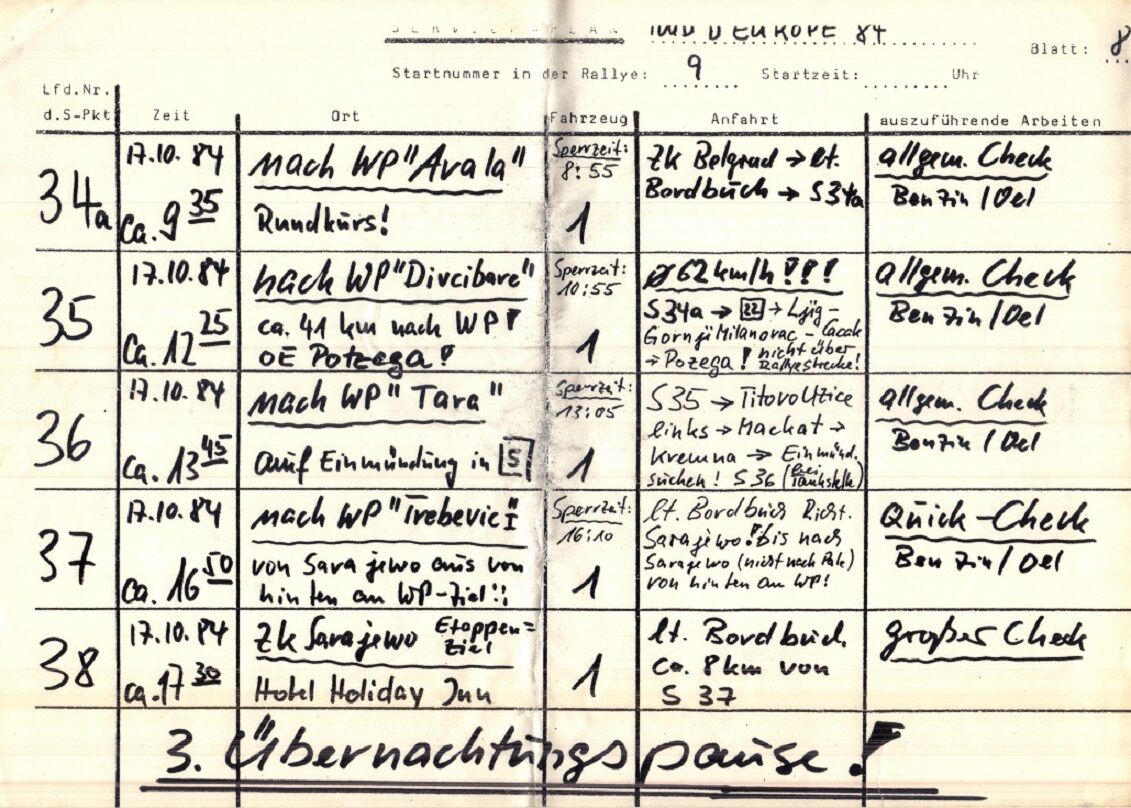 SERVICEPLAN TOUR D'EUROPE 84
Blatt: 8
Startnummer in der Rallye: 9 Startzeit: Uhr
Lfd.Nr.
d.S-Pkt Zeit Ort Fahrzeug Anfahrt auszuführende Arbeiten
34a
17.10.84
ca. 9 35
nach WP "Avala"
Rundkurs!
Sperrzeit:
8:55
1
Zk Belgrad → lt.
Bordbuch → S34a
allgem. Check
Benzin/Oel
35
17.10.84
Ca. 12 25
nach WP "Divcibare"
ca. 41 km nach WP!
OE Potzega!
Sperrzeit:
10:55
1
ø 62 km/h !!!
S34a → 22 → Ljig -
Gornji Milanovac - Cacak
→ Pozega! nicht über
Rallyestrecke!
allgem. Check
Benzin/Oel
36
17.10.84
ca. 13 45
nach WP "Tara"
auf Einmündung in 5
Sperrzeit:
13:05
1
S35 → Titovo Uzice
links → Mackat →
Kremna → Einmünd.
suchen! S36 (bei
Tankstelle)
allgem. Check
Benzin/Oel
37
17.10.84
ca. 16 50
nach WP "Trebevic I
von Sarajewo aus von
hinten an WP-Ziel!!
Sperrzeit:
16:10
1
lt. Bordbuch Richt.
Sarajewo! bis nach
Sarajewo (nicht nach Pale)
von hinten an WP!
Quick-Check
Benzin/Oel
38
17.10.84
ca. 17 30
Zk Sarajewo Etappen=
Ziel
Hotel Holiday Inn
1
lt. Bordbuch
ca. 8 km von
S 37
großer Check
3. Übernachtungspause!